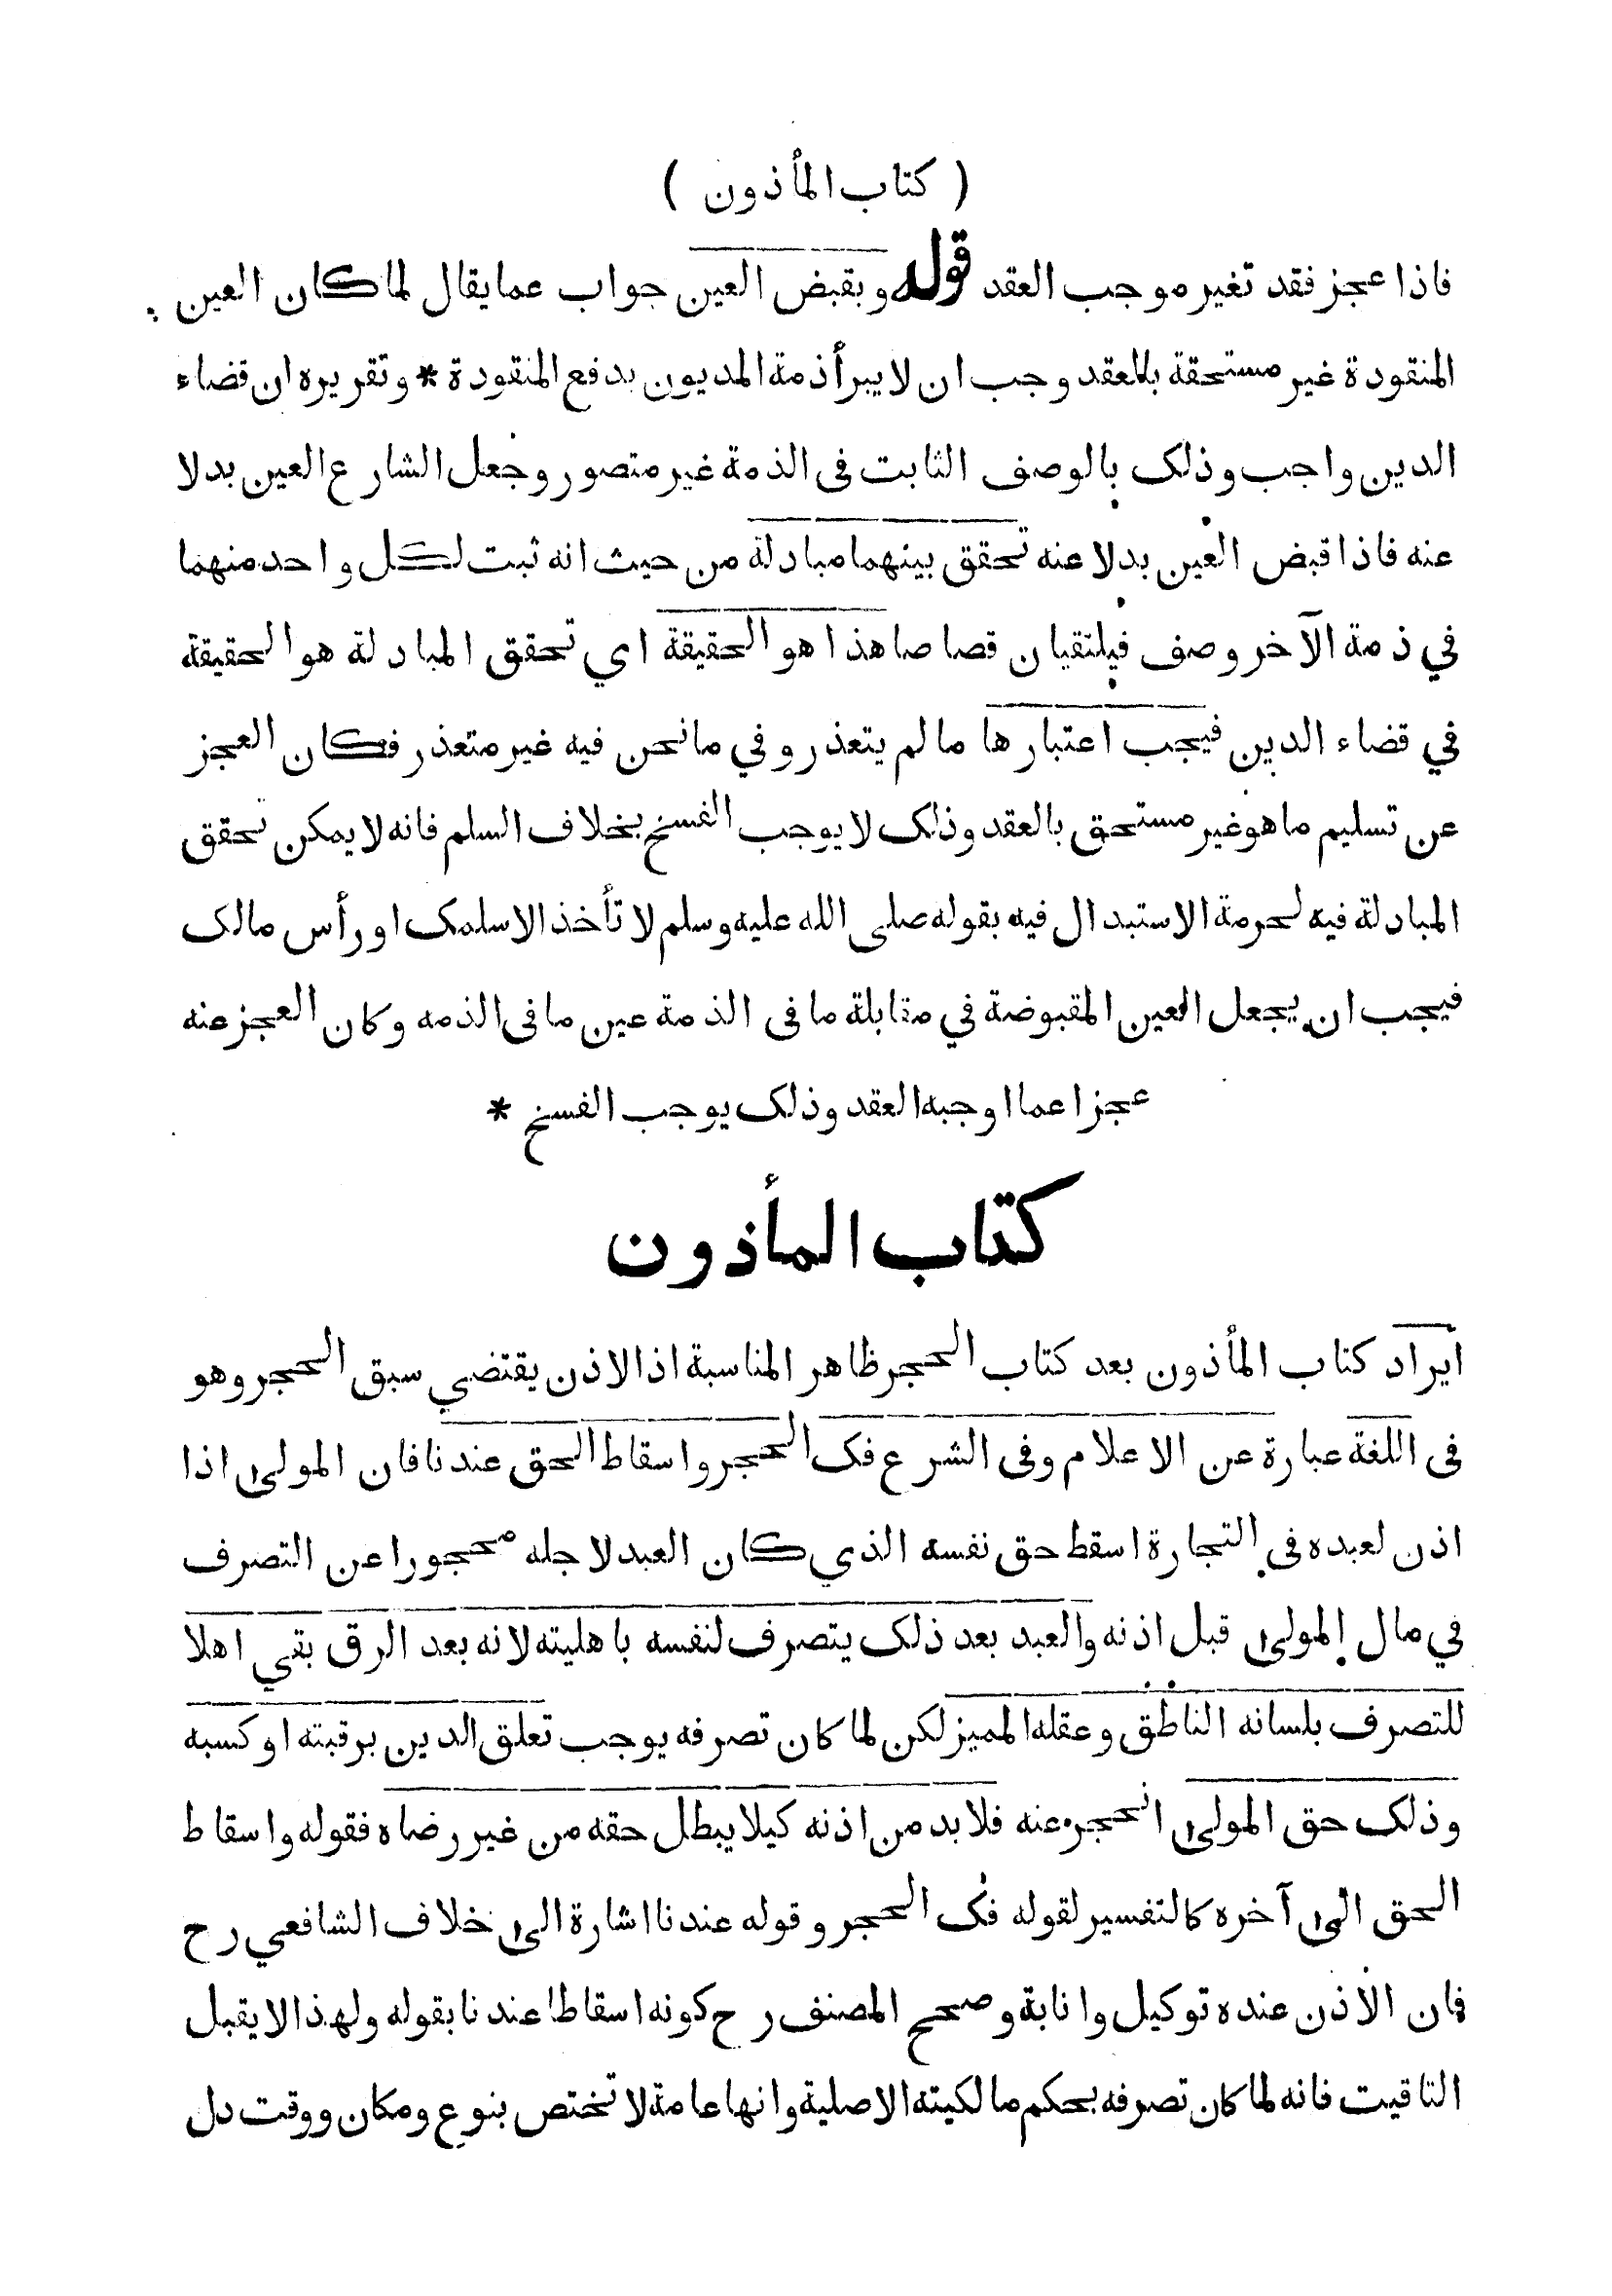 ( كتاب المأذون )
فاذا عجز فقد تغير موجب العقد قوله وبقبض العين جواب عما يقال لما كان العين
المنقودة غير مستحقة بالعقد وجب ان لا يبرأ ذمة المديون بدفع المنقودة * وتقريره ان قضاء
الدين واجب وذلك بالوصف الثابت فى الذمة غير متصور وجعل الشارع العين بدلا
عنه فاذا قبض العين بدلا عنه تحقق بينهما مبادلة من حيث انه ثبت لكل واحد منهما
في ذمة الآخر وصف فيلتقيان قصاصا هذا هو الحقيقة اي تحقق المبادلة هو الحقيقة
في قضاء الدين فيجب اعتبارها ما لم يتعذر وفي ما نحن فيه غير متعذر فكان العجز
عن تسليم ما هو غير مستحق بالعقد وذلك لا يوجب الفسخ بخلاف السلم فانه لا يمكن تحقق
المبادلة فيه لحرمة الاستبدال فيه بقوله صلى الله عليه وسلم لا تأخذ الا سلمك او رأس مالك
فيجب ان يجعل العين المقبوضة في مقابلة ما فى الذمة عين ما فى الذمه وكان العجز عنه
عجزا عما اوجبه العقد وذلك يوجب الفسخ *
كتاب المأذون
ايراد كتاب المأذون بعد كتاب الحجر ظاهر المناسبة اذ الاذن يقتضي سبق الحجر وهو
فى اللغة عبارة عن الاعلام وفى الشرع فك الحجر واسقاط الحق عندنا فان المولى اذا
اذن لعبده فى التجارة اسقط حق نفسه الذي كان العبد لاجله محجورا عن التصرف
في مال المولى قبل اذنه والعبد بعد ذلك يتصرف لنفسه باهليته لانه بعد الرق بقي اهلا
للتصرف بلسانه الناطق وعقله المميز لكن لما كان تصرفه يوجب تعلق الدين برقبته او كسبه
وذلك حق المولى انحجر عنه فلا بد من اذنه كيلا يبطل حقه من غير رضاه فقوله واسقاط
الحق الى آخره كالتفسير لقوله فك الحجر وقوله عندنا اشارة الى خلاف الشافعي رح
فان الاذن عنده توكيل وانابة وصحح المصنف رح كونه اسقاطا عندنا بقوله ولهذا لا يقبل
التاقيت فانه لما كان تصرفه بحكم مالكيته الاصلية وانها عامة لا تختص بنوع ومكان ووقت دل